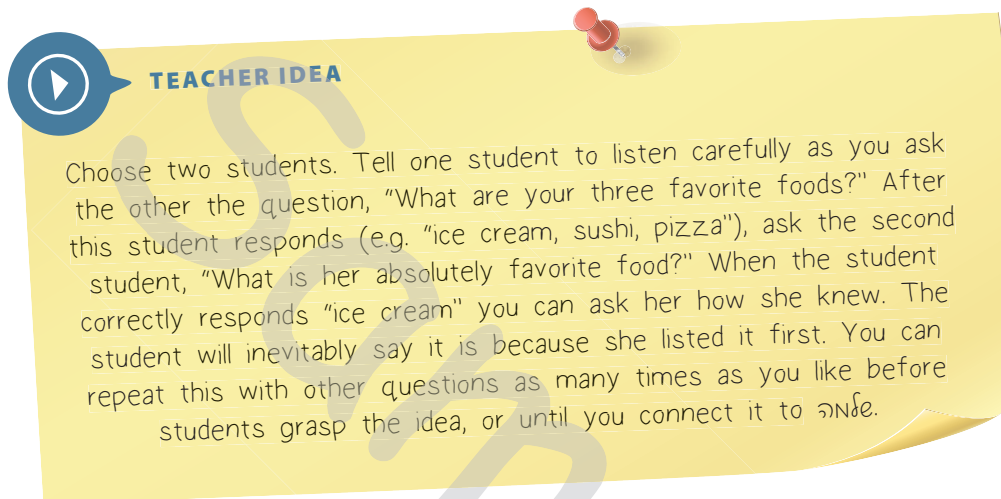 TEACHER IDEA
Choose two students. Tell one student to listen carefully as you ask
the other the question, “What are your three favorite foods?" After
this student responds (e.g. “ice cream, sushi, pizza"), ask the second
student, “What is her absolutely favorite food?" When the student
correctly responds “ice cream" you can ask her how she knew. The
student will inevitably say it is because she listed it first. You can
repeat this with other questions as many times as you like before
students grasp the idea, or until you connect it to שלמה.